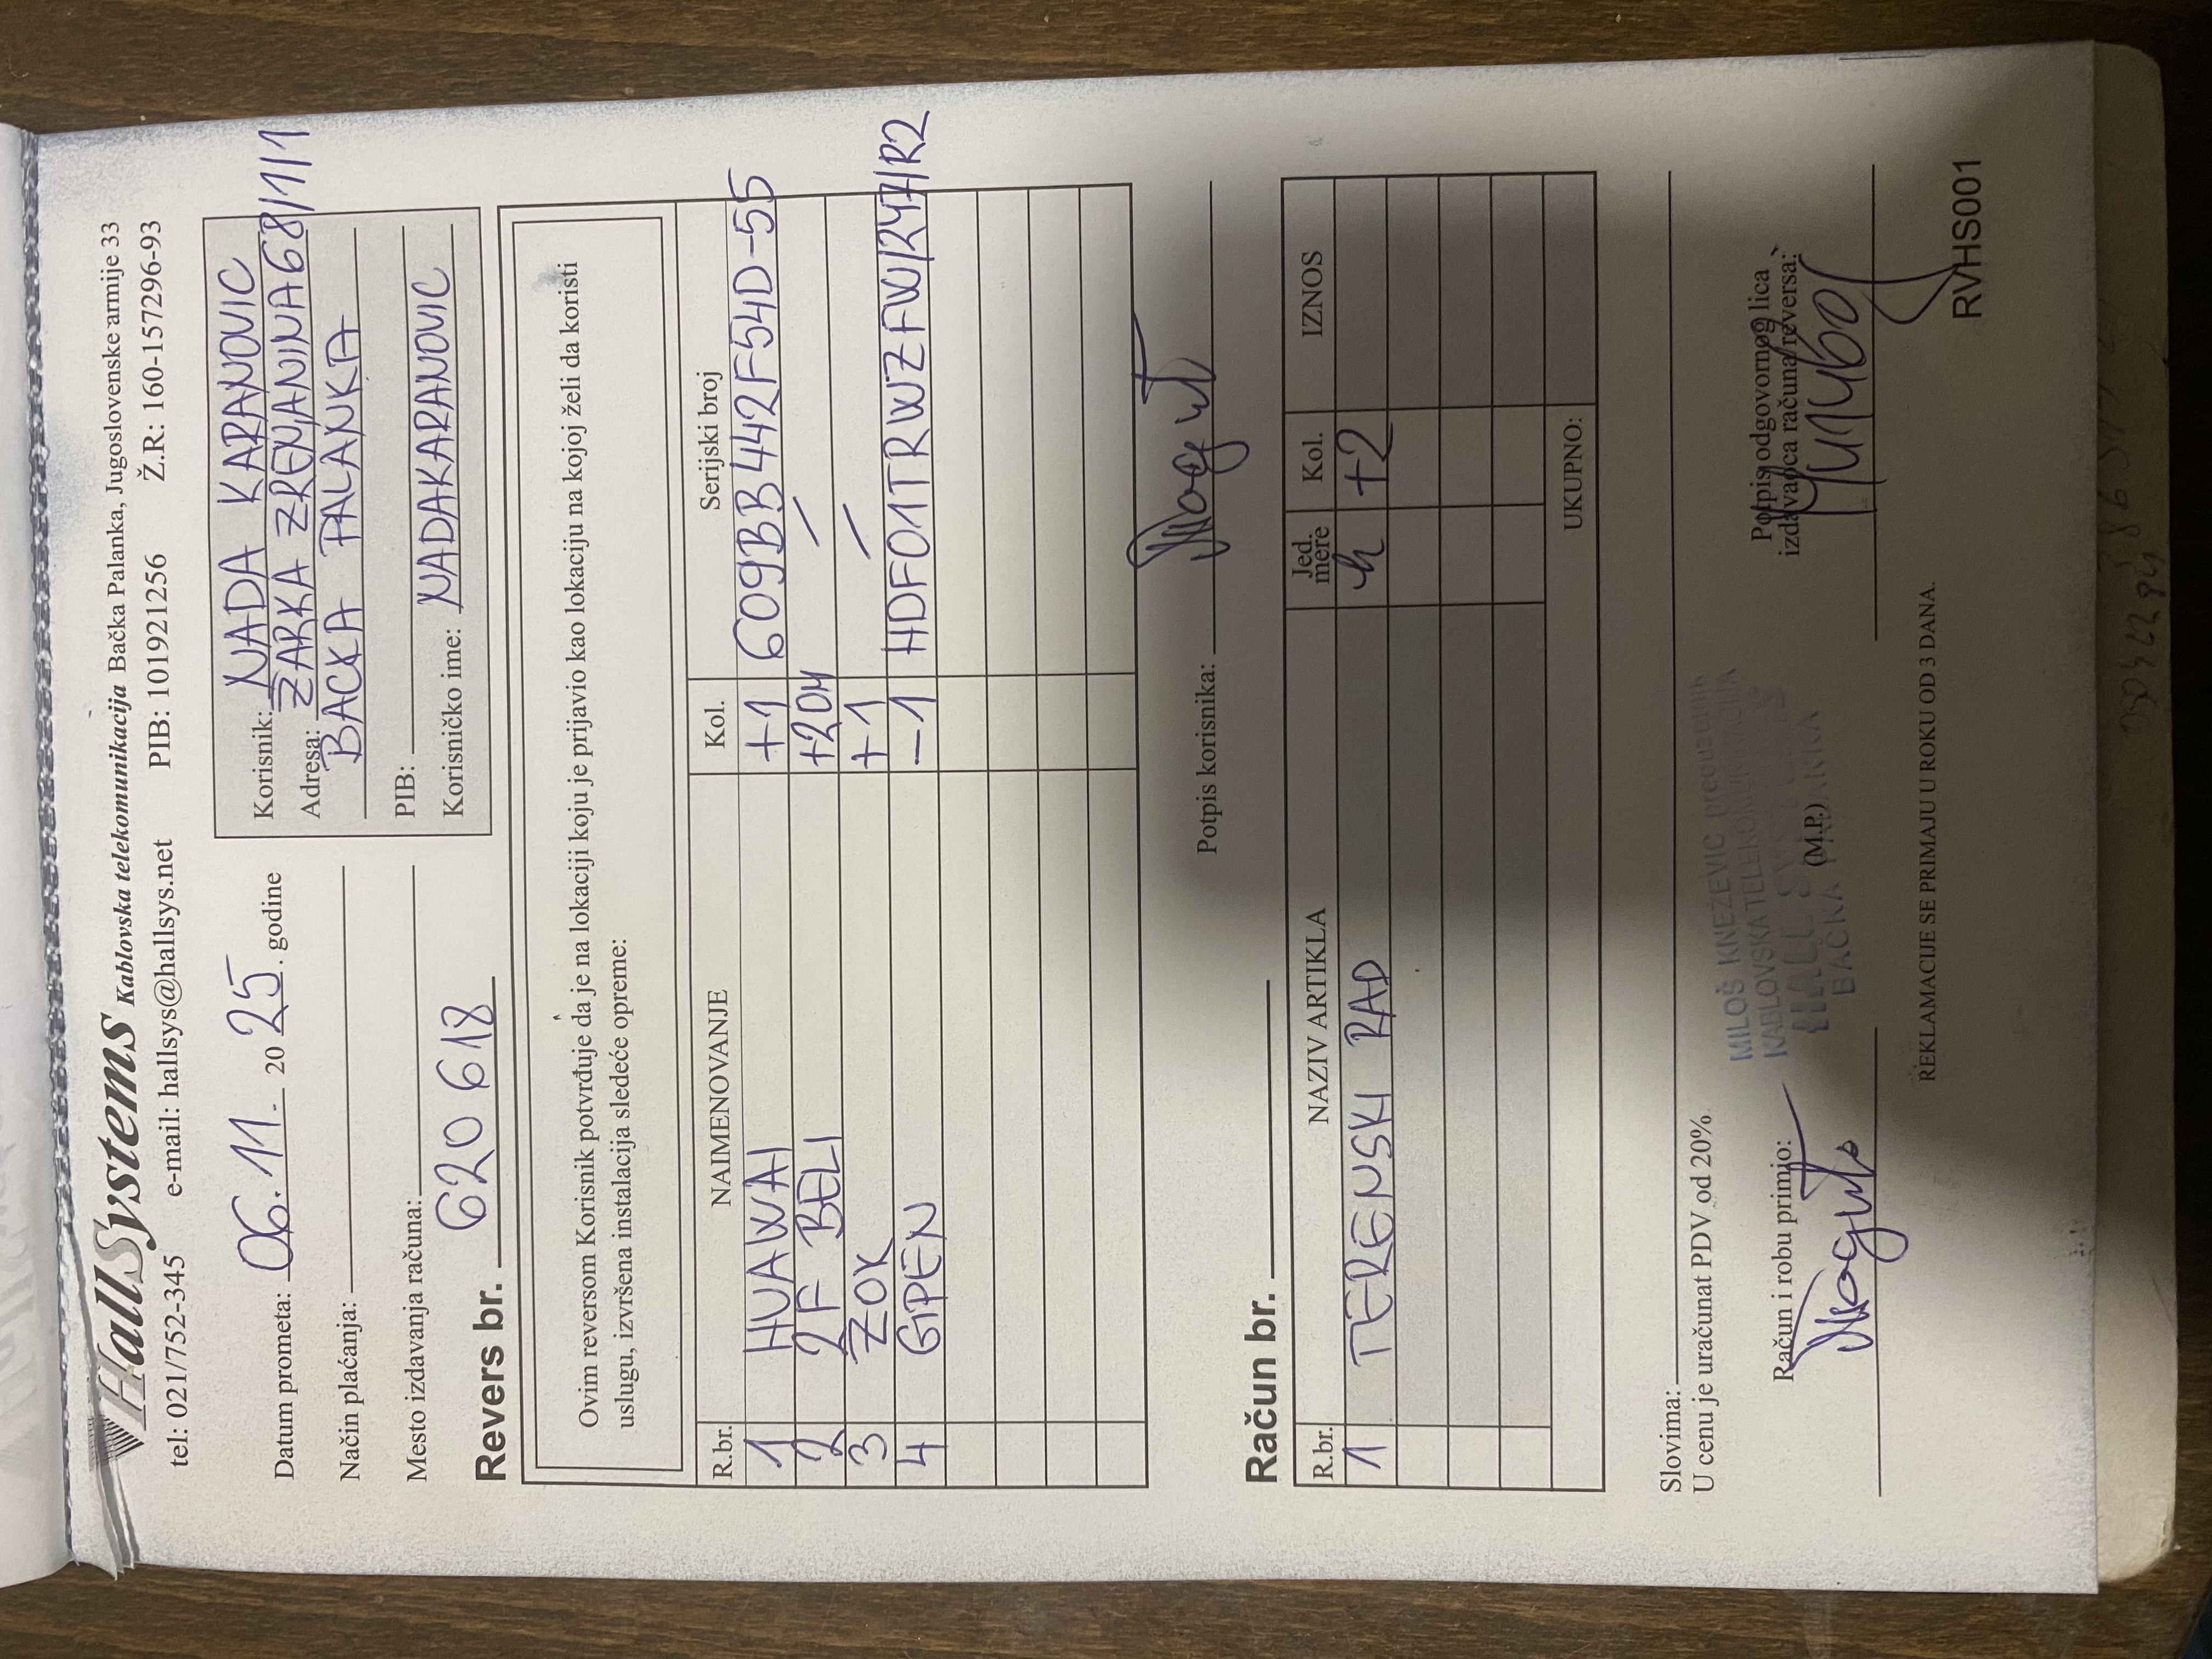 HallSystems Kablovska telekomunikacija Bačka Palanka, Jugoslovenske armije 33
tel: 021/752-345 e-mail: hallsys@hallsys.net PIB: 101921256 Ž.R: 160-157296-93
Datum prometa: 06.11. 2025. godine
Način plaćanja:
Mesto izdavanja računa:
Korisnik: NADA KARANOVIC
Adresa: ZARKA ZRENJANINA 68/1/1
BACKA PALANKA
PIB:
Korisničko ime: NADAKARANOVIC
Revers br. 620618
Ovim reversom Korisnik potvrđuje da je na lokaciji koju je prijavio kao lokaciju na kojoj želi da koristi
uslugu, izvršena instalacija sledeće opreme:
R.br. NAIMENOVANJE Kol. Serijski broj
1 HUAWAI +1 609BB442F54D-55
2 2F BELI +20M /
3 ZOK +1 /
4 GIPEN -1 HDF01TRWZFW/247/R2
Potpis korisnika:
Račun br.
R.br. NAZIV ARTIKLA Jed. mere Kol. IZNOS
1 TERENSKI RAD h +2
UKUPNO:
Slovima:
U cenu je uračunat PDV od 20%
Račun i robu primio:
MILOŠ KNEŽEVIĆ preduzetnik
KABLOVSKA TELEKOMUNIKACIJA
HALL SYSTEMS
BAČKA PALANKA
(M.P.)
Potpis odgovornog lica
izdavaoca računa/reversa:
REKLAMACIJE SE PRIMAJU U ROKU OD 3 DANA.
RVHS001